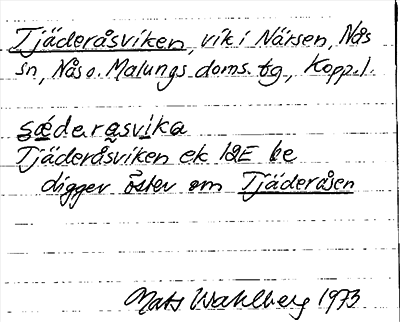 Tjäderåsviken, vik i Närsen, Nås
sn, Nås o. Malungs doms. tg., Kopp. l.
sǽderåsvika
Tjäderåsviken ek 12E 6e
ligger öster om Tjäderåsen
Mats Wahlberg 1973